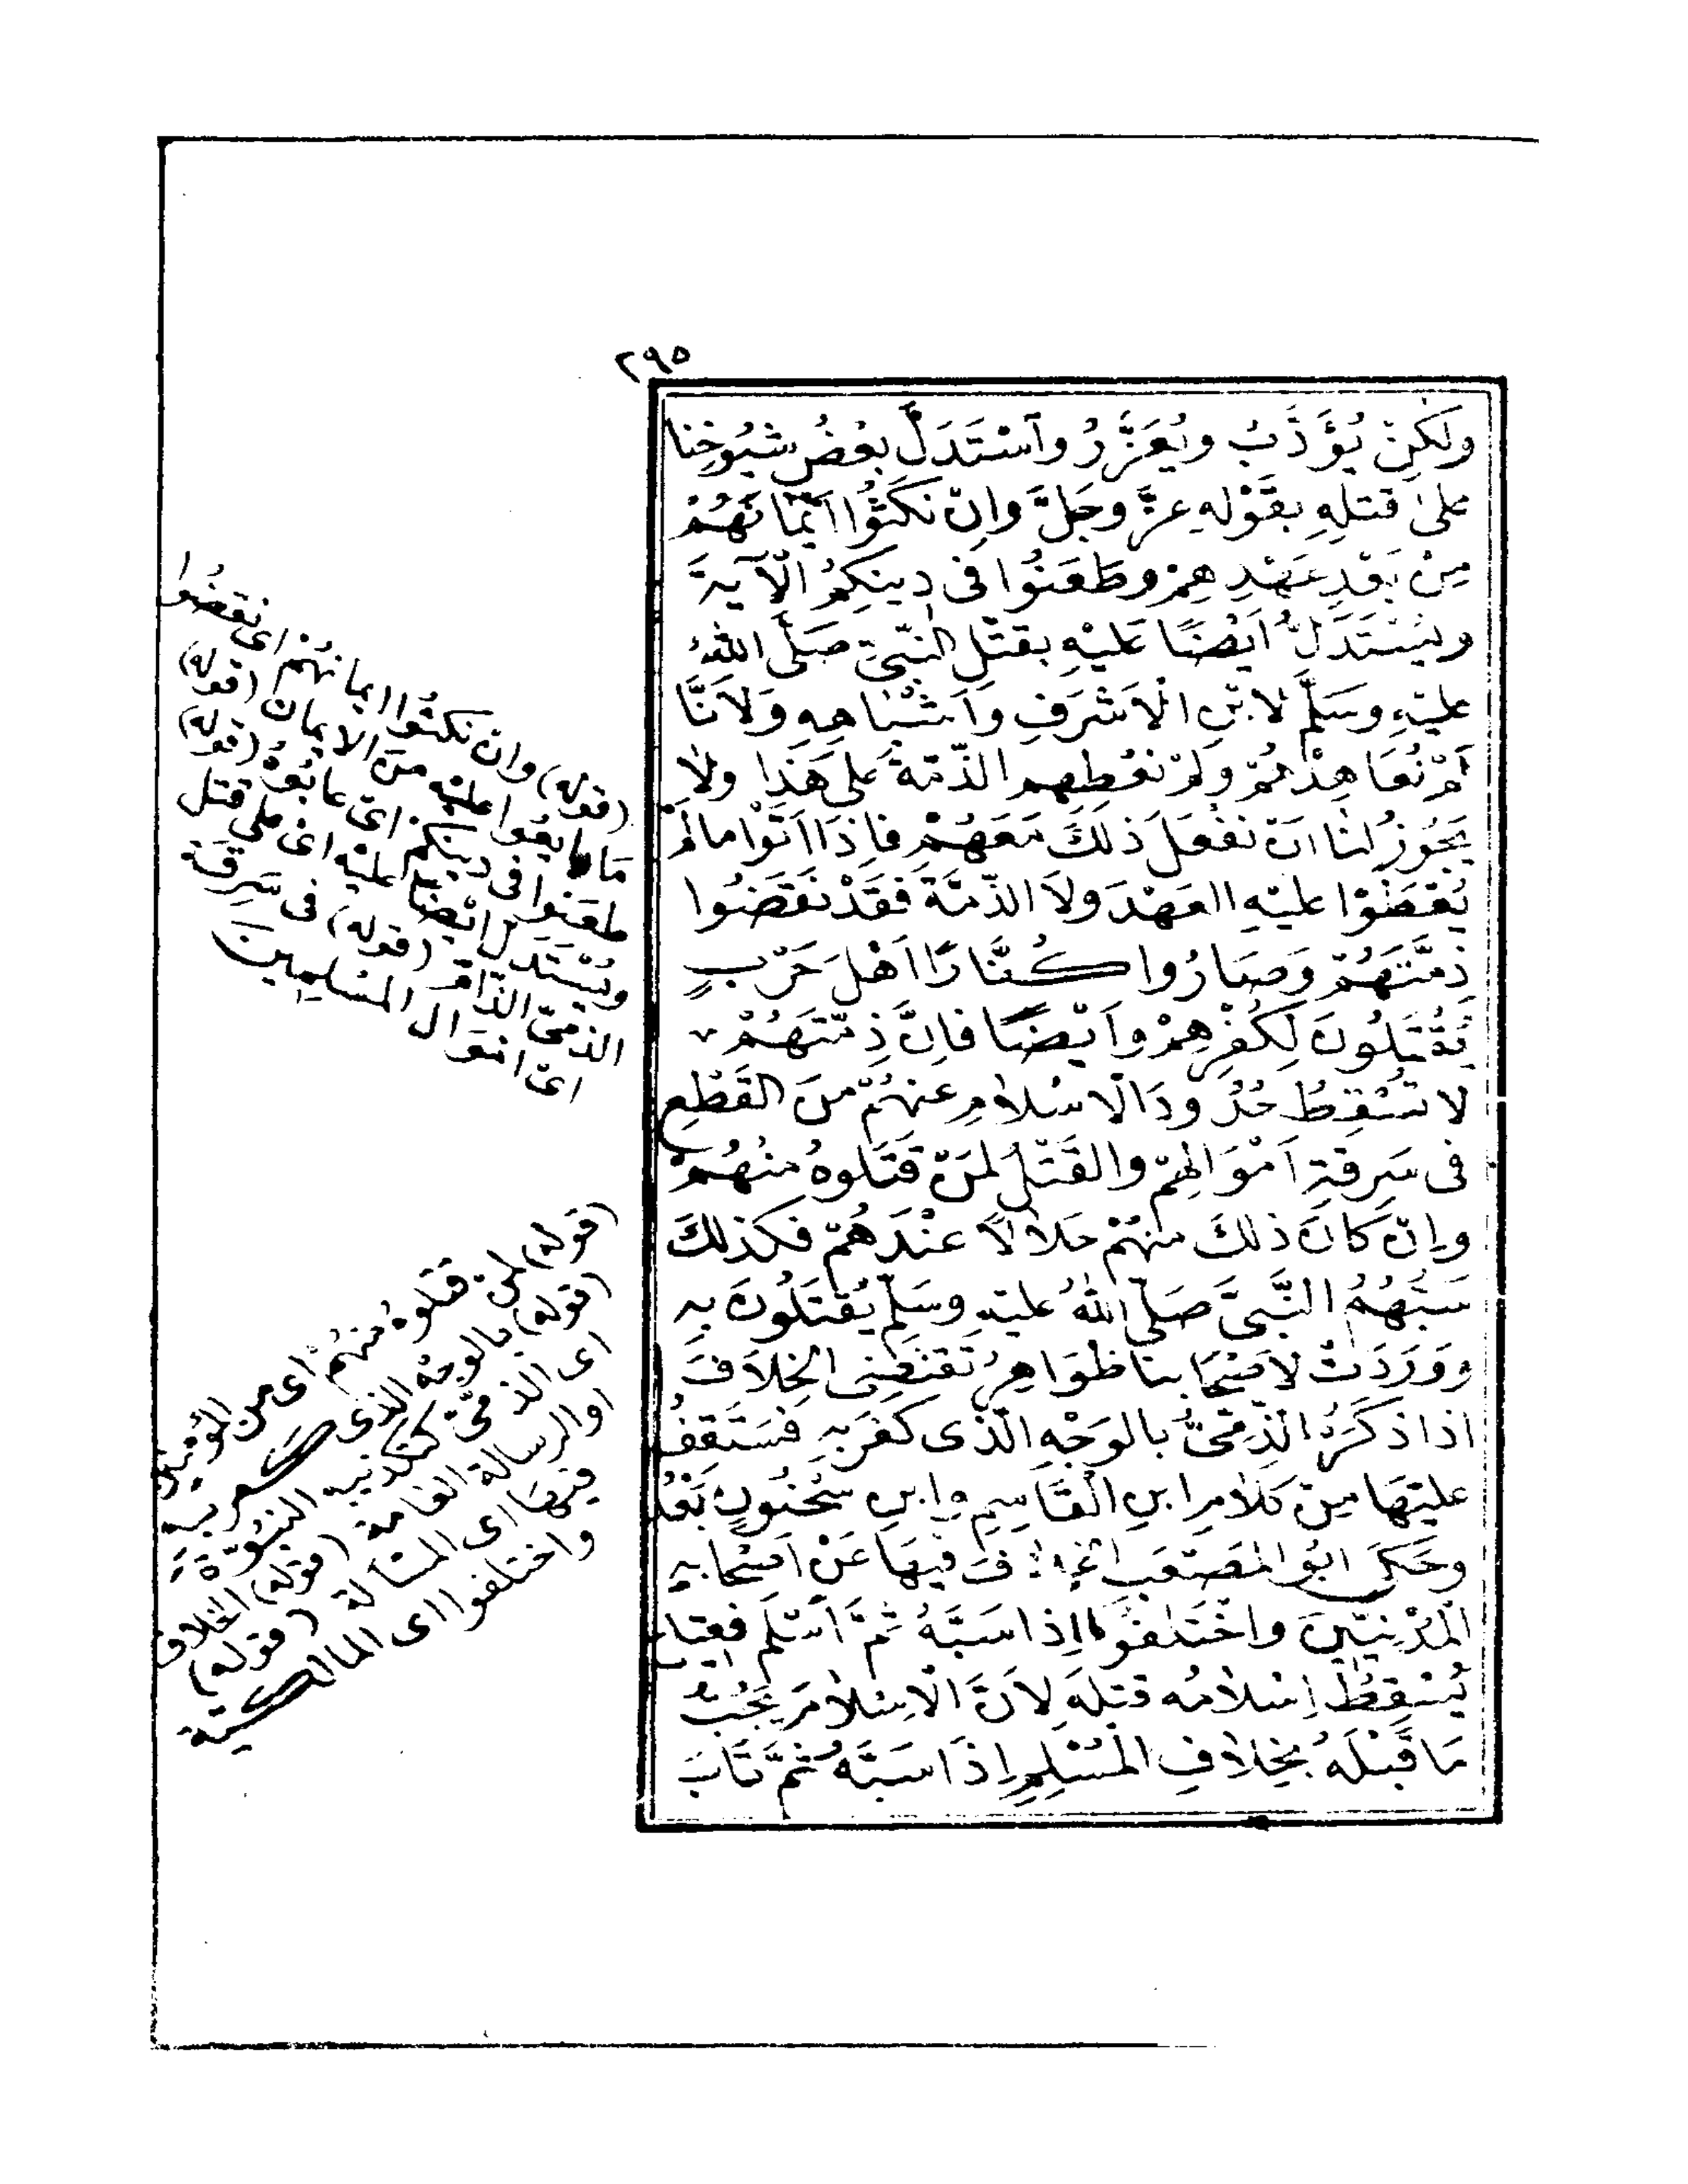 ٢٩٥
ولكِنْ يُؤَدَّبُ ويُعَزَّرُ وَاسْتَدَلَّ بعْضُ شيُوخِنا
علىٰ قتلِهِ بقَوْلِهِ عزَّ وجَلَّ وإنْ نَكَثُوا اَيْمَانَهُمْ
مِنْ بَعْدِ عَهْدِهِمْ وطَعَنُوا فى دِينِكُمُ الْآيةَ
ويُسْتَدَلُّ اَيْضًا عَلَيْهِ بقَتْلِ النَّبِىِّ صَلَّى اللهُ
عليْهِ وسَلَّم لابْنِ الْاَشْرَفِ وَاَشْبَاهِهِ وَلَاَنَّا
لَمْ نُعَاهِدْهُمْ ولَمْ نعْطِهِم الذِّمّةَ عَلىٰ هَذَا ولَا
يَجُوزُ لنَا اَنْ نفْعَلَ ذلكَ مَعَهُمْ فَإِذَا اَتَوْا مالَمْ
يُعْطَوْا عليْهِ العَهْدَ ولَا الذّمَّةَ فَقَدْ نَقَضُوا
ذِمَّتَهُمْ وَصَارُوا كُفَّارًا اَهْلَ حَرْبٍ
يُقْتَلُونَ لِكُفْرِهِمْ واَيْضًا فَاِنَّ ذِمّتَهُمْ
لا تُسْقِطُ حُدُودَ الْاسْلامِ عنهُمْ مِنَ القَطْعِ
فى سَرِقةِ اَمْوَالِهِمْ والقَتْلِ لِمَنْ قَتَلوهُ منْهُمْ
وإنْ كانَ ذلكَ منهُمْ حَلالًا عنْدَهُمْ فكَذلكَ
سَبُّهُمُ النَّبىَّ صَلَّى اللهُ عليْهِ وسَلّم يُقْتَلُونَ بهِ
ووَرَدَتْ لاَصْحَابنا ظوَاهِرُ تَقْتَضِى الخِلَافَ
اذا ذكَرَهُ الذِّمّىُّ بالوَجْهِ الّذى كَفَرَ بهِ فسَتَقِفُ
عليْهَا مِنْ كَلَامِ ابنِ الْقَاسِمِ وابنِ سُحْنُونٍ بَعْدُ
وحَكَى ابُو المصْعَب الخِلَافَ فيهَا عَنْ اَصْحَابهِ
الْمَدَنِيّينَ واخْتَلَفُوا اِذا سَبَّهُ ثُمَّ اَسْلَم فقِيلَ
يُسْقِطُ اِسْلامُه قتْلَهُ لِاَنَّ الْاِسْلامَ يَجُبُّ
مَا قَبْلَهُ بخِلافِ الْمُسْلِمِ اِذَا سَبَّهُ ثُمَّ تَابَ
(قوله) وان نكثوا ايمانهُمْ اى نقضُوا
مَا بايعُوا عليْهِ منَ الايمان (قوله)
طعنوا فى دينكم اىْ عابُوهُ (قوله)
ويُسْتَدَل ايْضًا عليْه اىْ على قتل
الذمىّ الذامّ (قوله) فى سَرِقة
اىْ امْوَال المسْلِمِينَ
(قوله) لمنْ قتلوهُ منهُم اى من المؤمنين
(قوله) بالوجْه الذى كفر به
اى الذمىّ كتكذيبه النبُوّة
او الرسالة العامة (قوله) الخلاف
فيهَا اى المسْألة (قوله)
واختلفوا اى المالكيّة